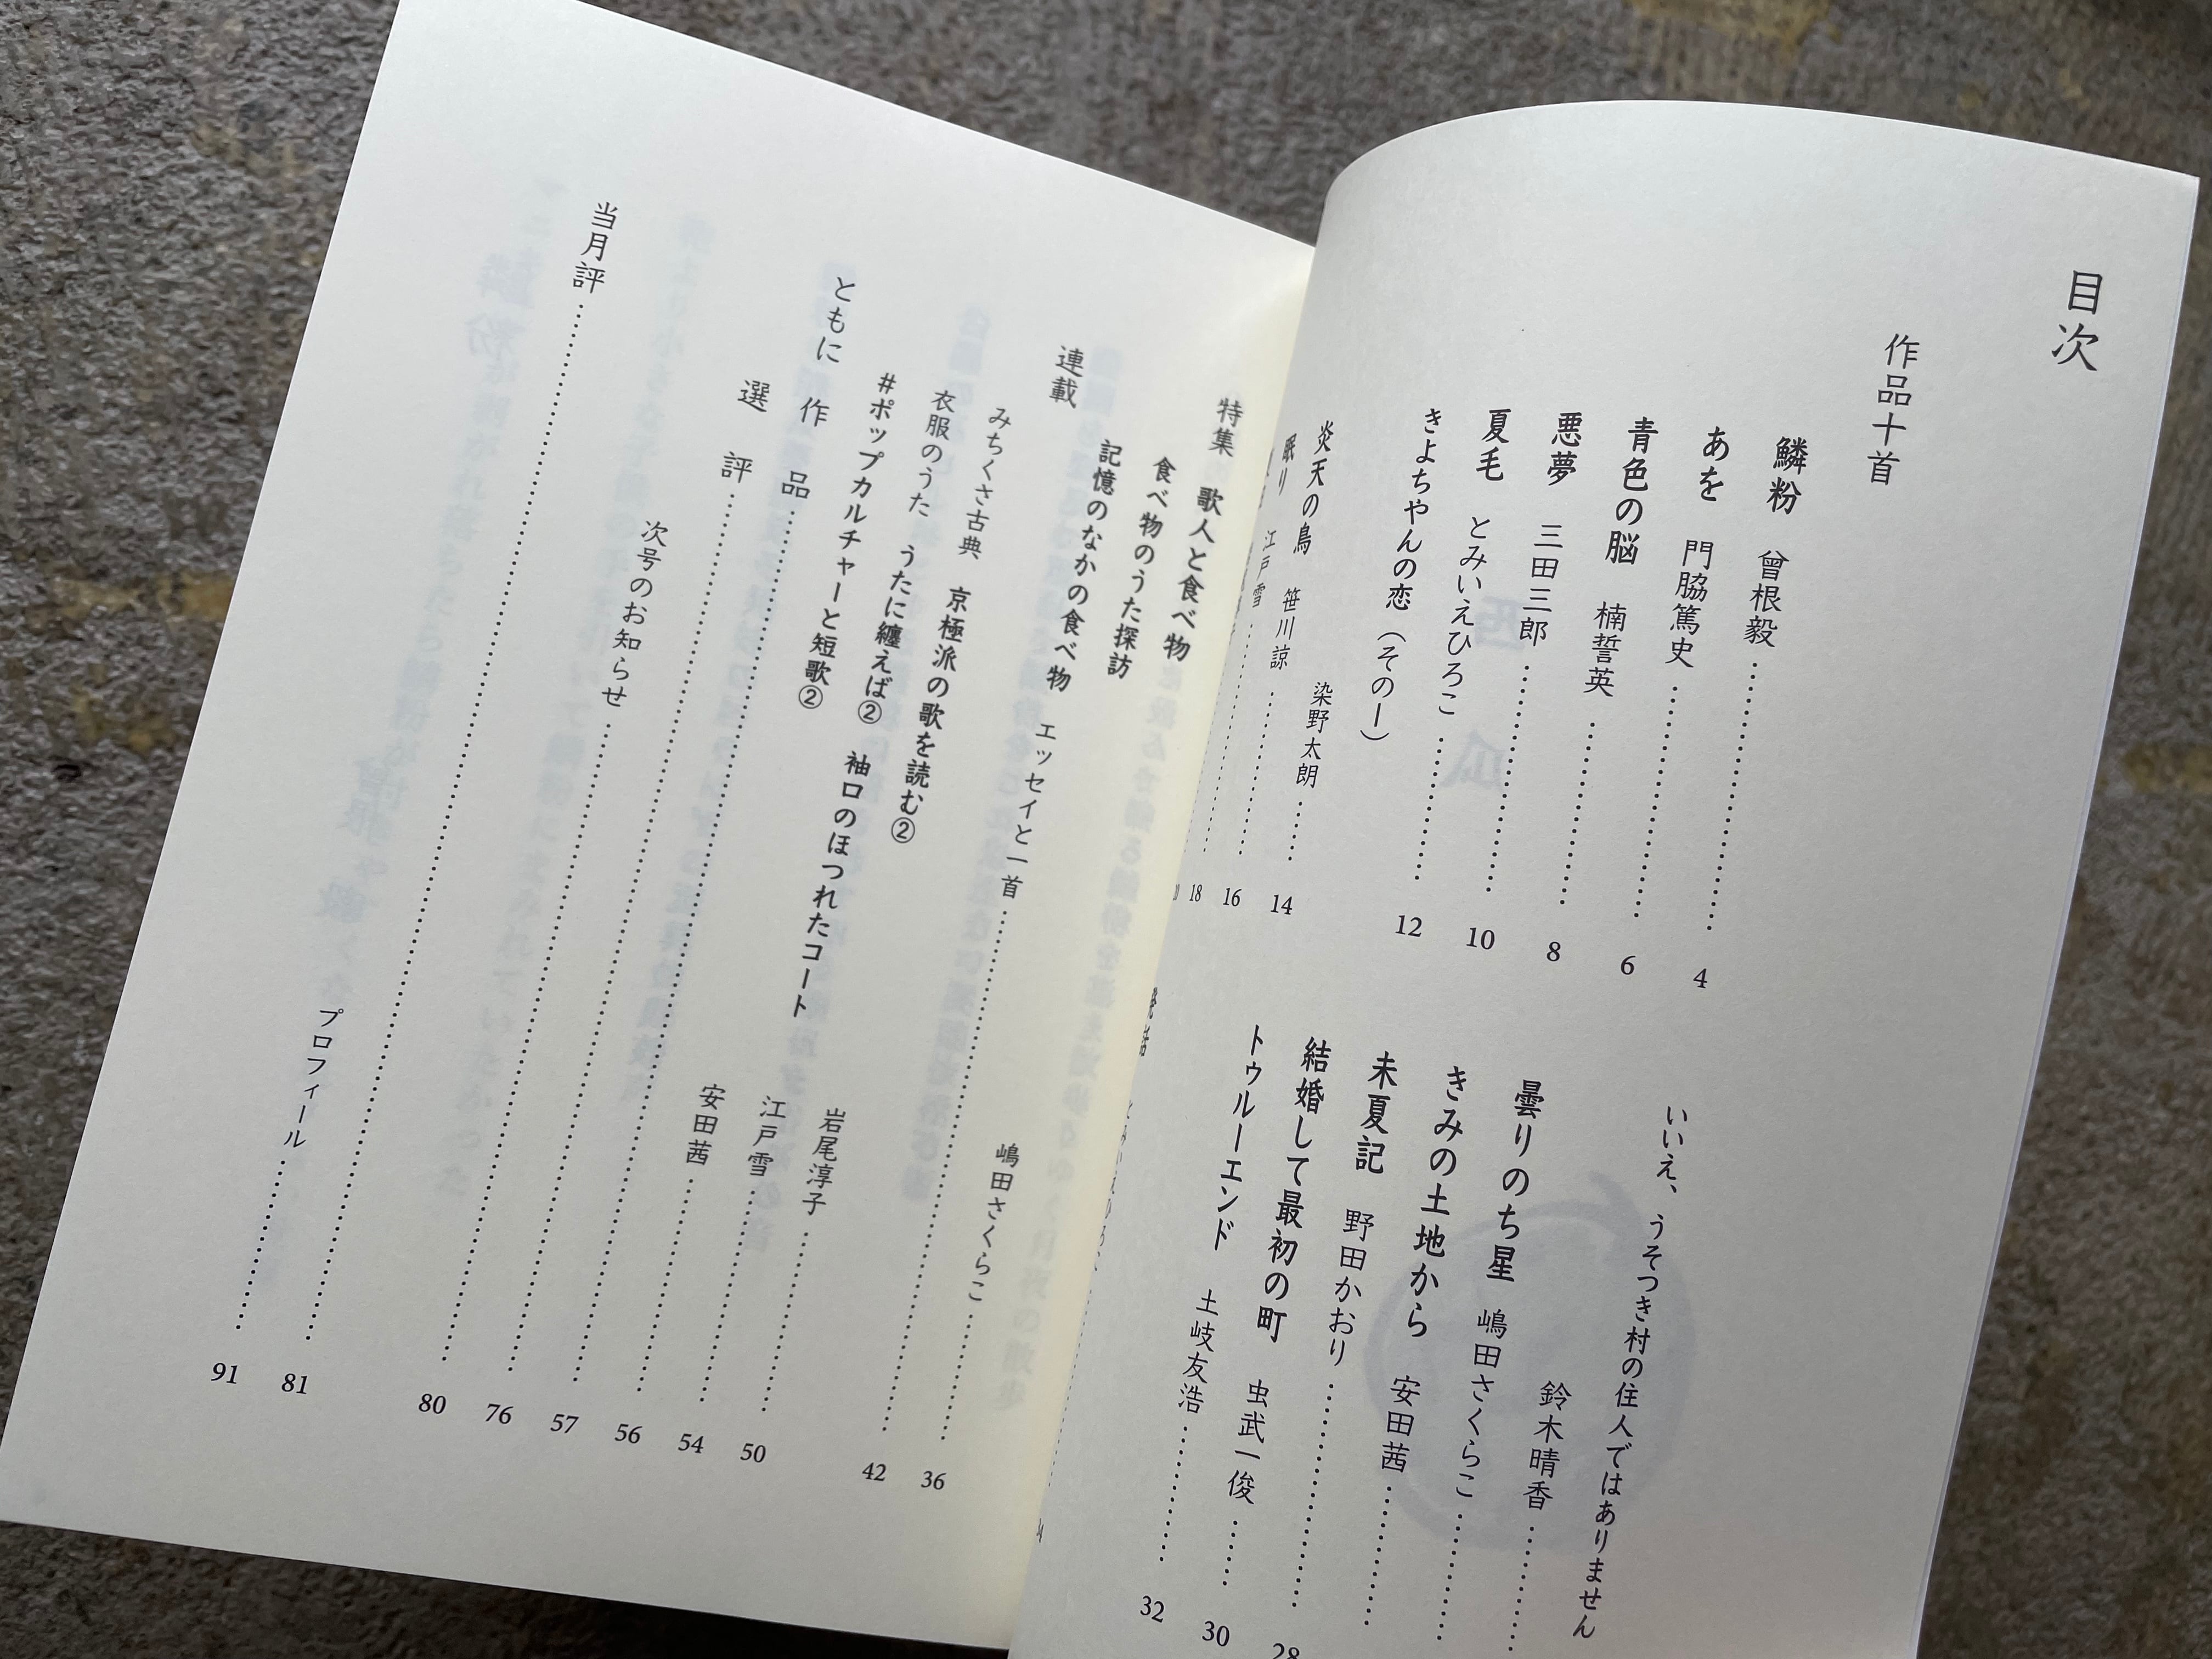 目次
作品十首
鱗粉 曾根毅 4
あを 門脇篤史 6
青色の脳 楠誓英 8
悪夢 三田三郎 10
夏毛 とみいえひろこ 12
きよちやんの恋(その一)
染野太朗 14
炎天の鳥 笹川諒 16
眠り 江戸雪 18
いいえ、うそつき村の住人ではありません
鈴木晴香
曇りのち星 嶋田さくらこ
きみの土地から 安田茜
未夏記 野田かおり 28
結婚して最初の町 虫武一俊 30
トゥルーエンド 土岐友浩 32
発話
特集 歌人と食べ物
食べ物のうた探訪
嶋田さくらこ 36
記憶のなかの食べ物 エッセイと一首 42
連載
みちくさ古典 京極派の歌を読む②
岩尾淳子 50
衣服のうた うたに纏えば② 袖口のほつれたコート
江戸雪 54
#ポップカルチャーと短歌②
安田茜 56
ともに
作品 57
選評 76
次号のお知らせ 80
当月評 81
プロフィール 91